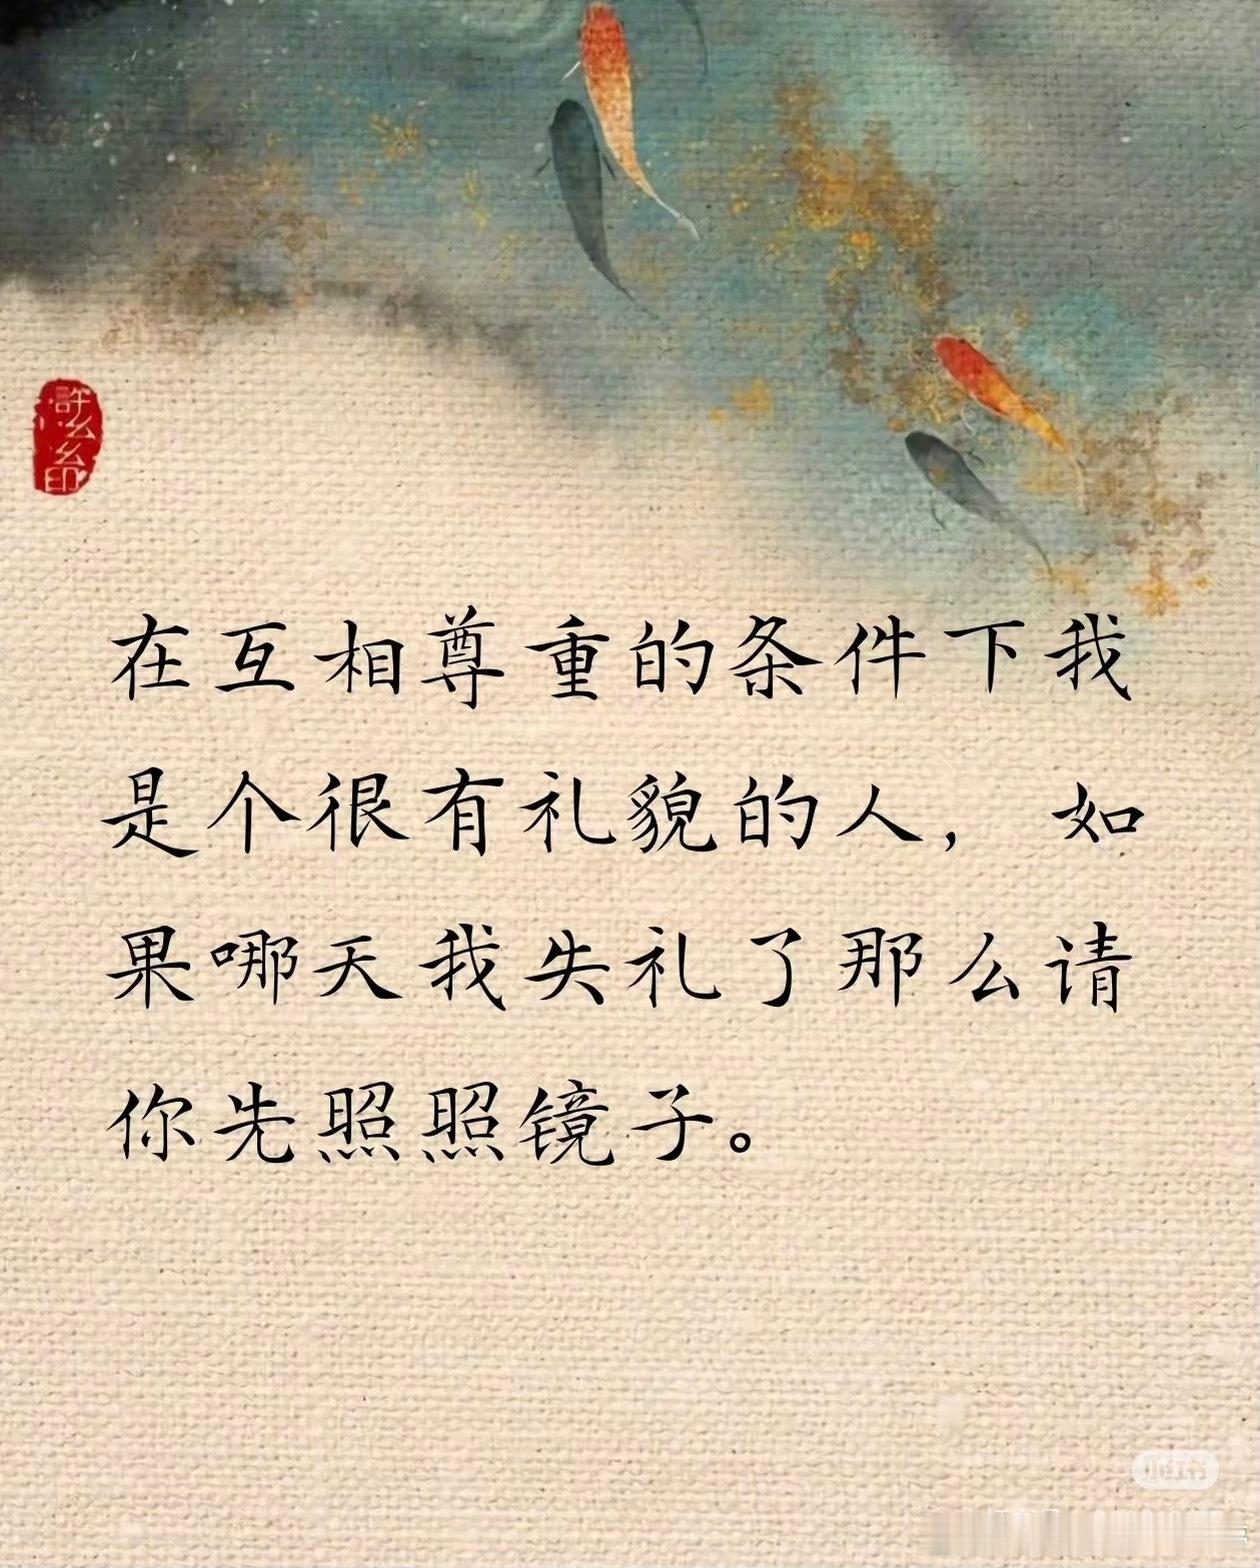 在互相尊重的条件下我
是个很有礼貌的人，如
果哪天我失礼了那么请
你先照照镜子。
小红书